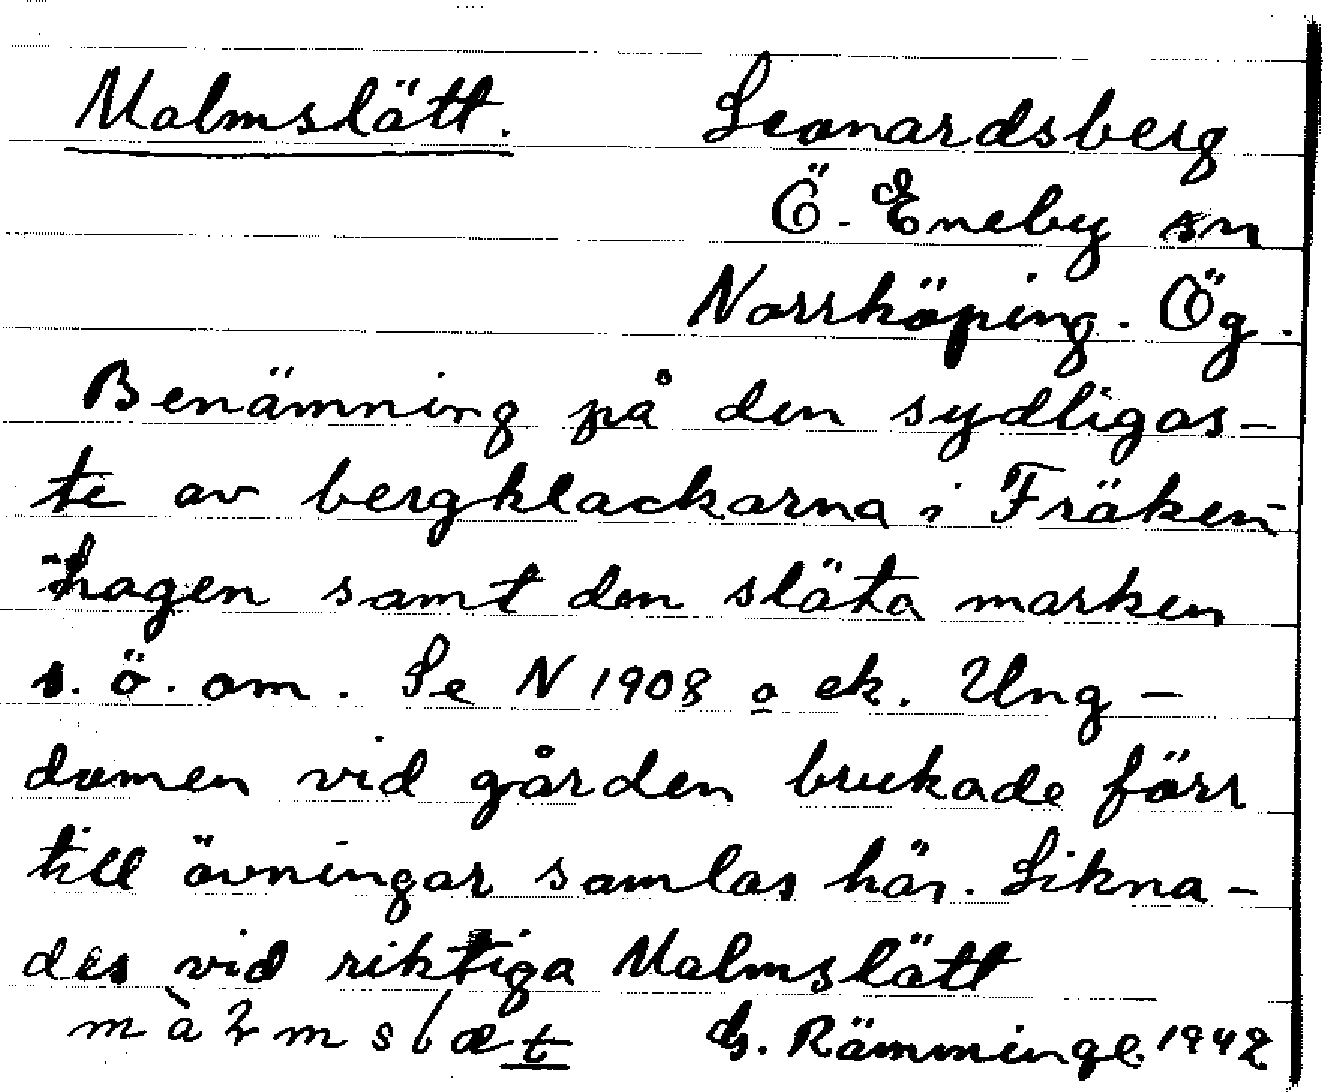 Malmslätt. Leonardsberg
Ö. Eneby sn
Norrköping. Ög.
Benämning på den sydligas-
te av bergklackarna i Fräken-
-hagen samt den släta marken
s. ö. om. Se N 1908 o ek. Ung-
domen vid gården brukade förr
till övningar samlas här. Likna-
des vid riktiga Malmslätt
Rämminge 1942